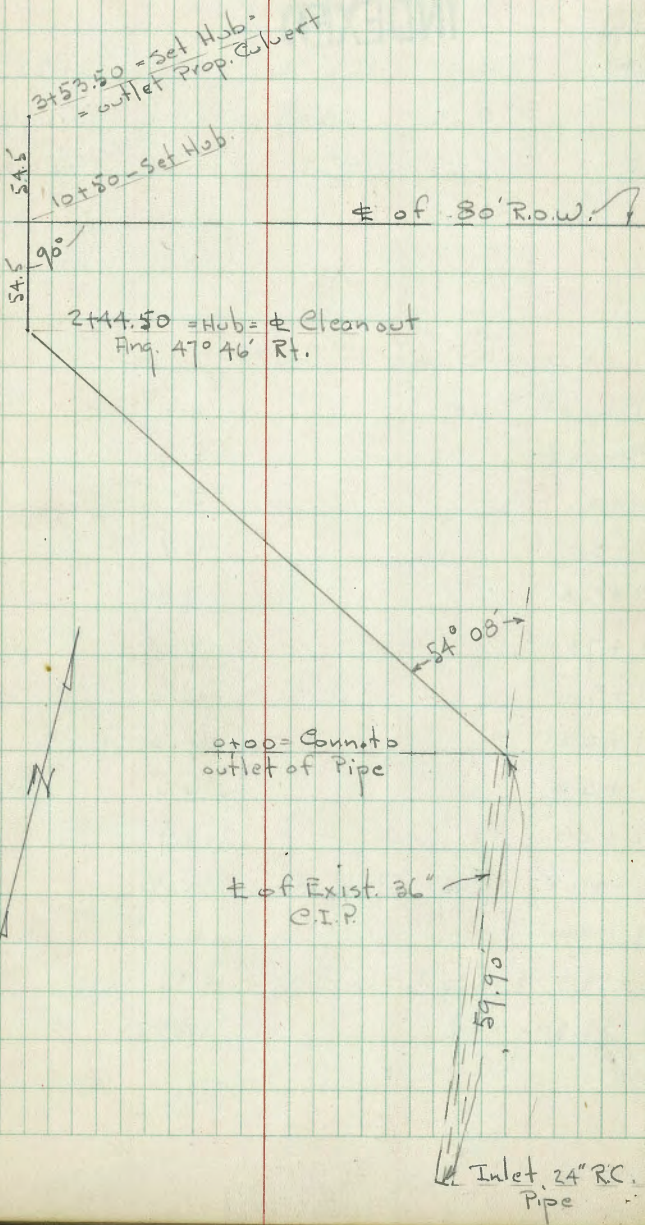 3+53.50 = Set Hub =
= outlet Prop. Culvert
54.5'
10+50 - Set Hub.
℄ of 80' R.O.W.
90°
54.5'
2+44.50 = Hub = ℄ Cleanout
Ang. 47° 46' Rt.
54° 08'
0+00 = Conn. to
outlet of Pipe
N
℄ of Exist. 36"
C.I.P.
59.90'
Inlet 24" R.C.
Pipe